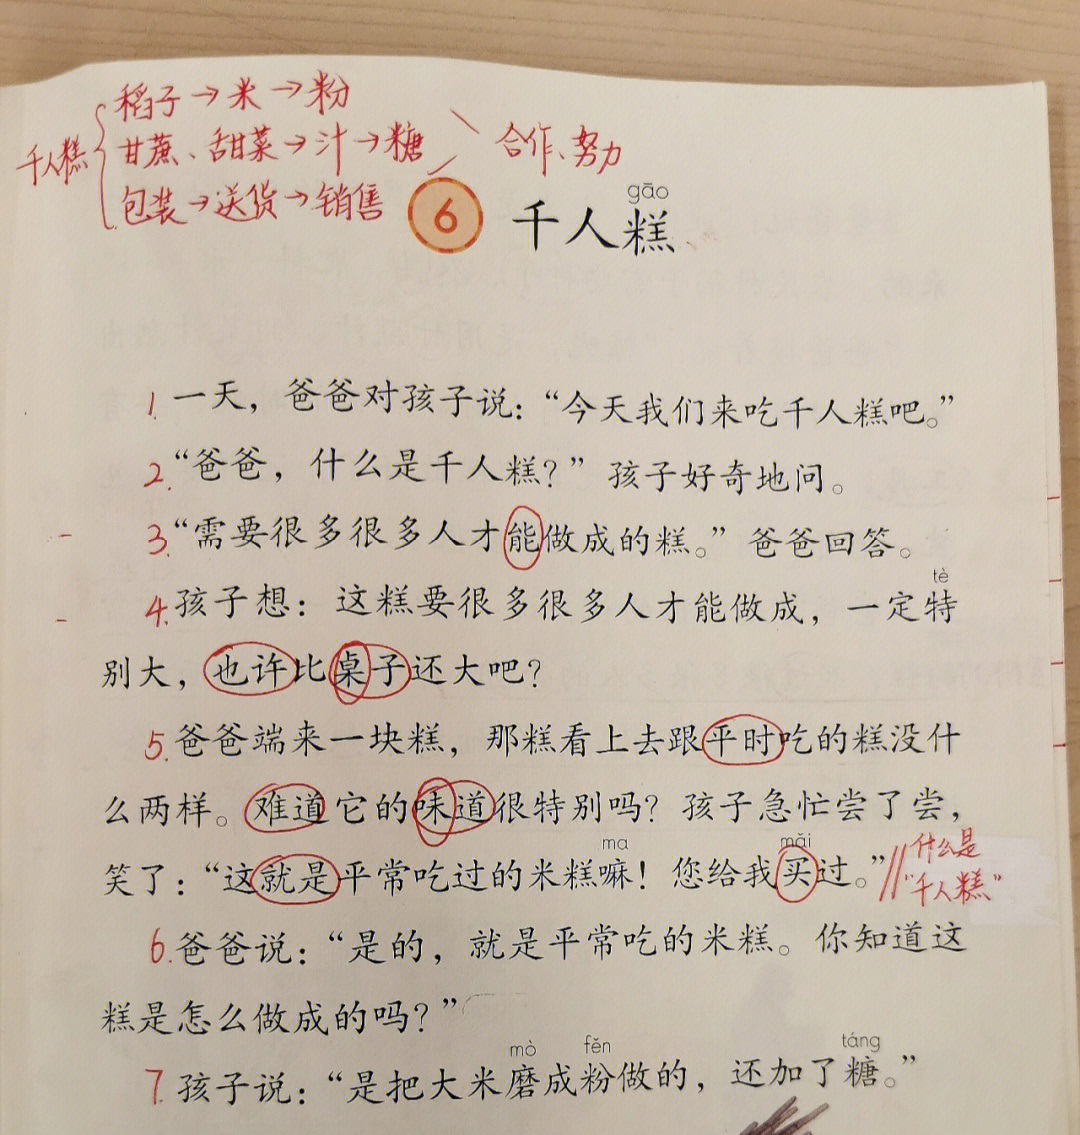 稻子→米→粉
千人糕
甘蔗、甜菜→汁→糖
合作、努力
包装→送货→销售
gāo
6 千人糕
1. 一天，爸爸对孩子说：“今天我们来吃千人糕吧。”
2. “爸爸，什么是千人糕？”孩子好奇地问。
3. “需要很多很多人才能做成的糕。”爸爸回答。
tè
4. 孩子想：这糕要很多很多人才能做成，一定特
别大，也许比桌子还大吧？
5. 爸爸端来一块糕，那糕看上去跟平时吃的糕没什
么两样。难道它的味道很特别吗？孩子急忙尝了尝，
ma mǎi
笑了：“这就是平常吃过的米糕嘛！您给我买过。”
什么是
“千人糕”
6. 爸爸说：“是的，就是平常吃的米糕。你知道这
糕是怎么做成的吗？”
mò fěn táng
7. 孩子说：“是把大米磨成粉做的，还加了糖。”